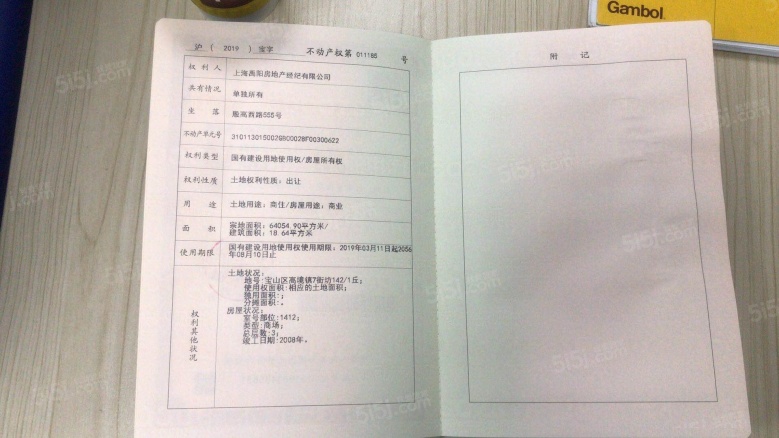 Gambol
沪 ( 2019 ) 宝字 不动产权第 011185 号
附 记
权利人 上海禹阳房地产经纪有限公司
共有情况 单独所有
坐落 殷高西路555号
不动产单元号 310113015002GB00028F00300622
权利类型 国有建设用地使用权/房屋所有权
权利性质 土地权利性质：出让
用途 土地用途：商住/房屋用途：商业
面积 宗地面积：64054.90平方米/
建筑面积：18.64平方米
使用期限 国有建设用地使用权使用期限：2019年03月11日起2056
年08月10日止
权利其他状况
土地状况：
地号：宝山区高境镇7街坊142/1丘；
使用权面积：相应的土地面积；
独用面积：；
分摊面积：。
房屋状况：
室号部位：1412；
类型：商场；
总层数：3；
竣工日期：2008年。
515j.com